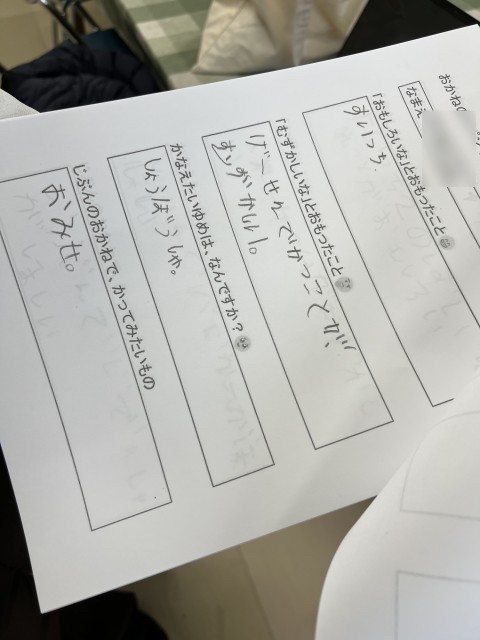 おかね
なまえ
「おもしろいな」とおもったこと
すいっち
「むずかしいな」とおもったこと
げーせんでかつことが、
むずかしい。
かなえたいゆめは、なんですか?
しょうぼうしゃ。
じぶんのおかねで、かってみたいもの
おみせ。